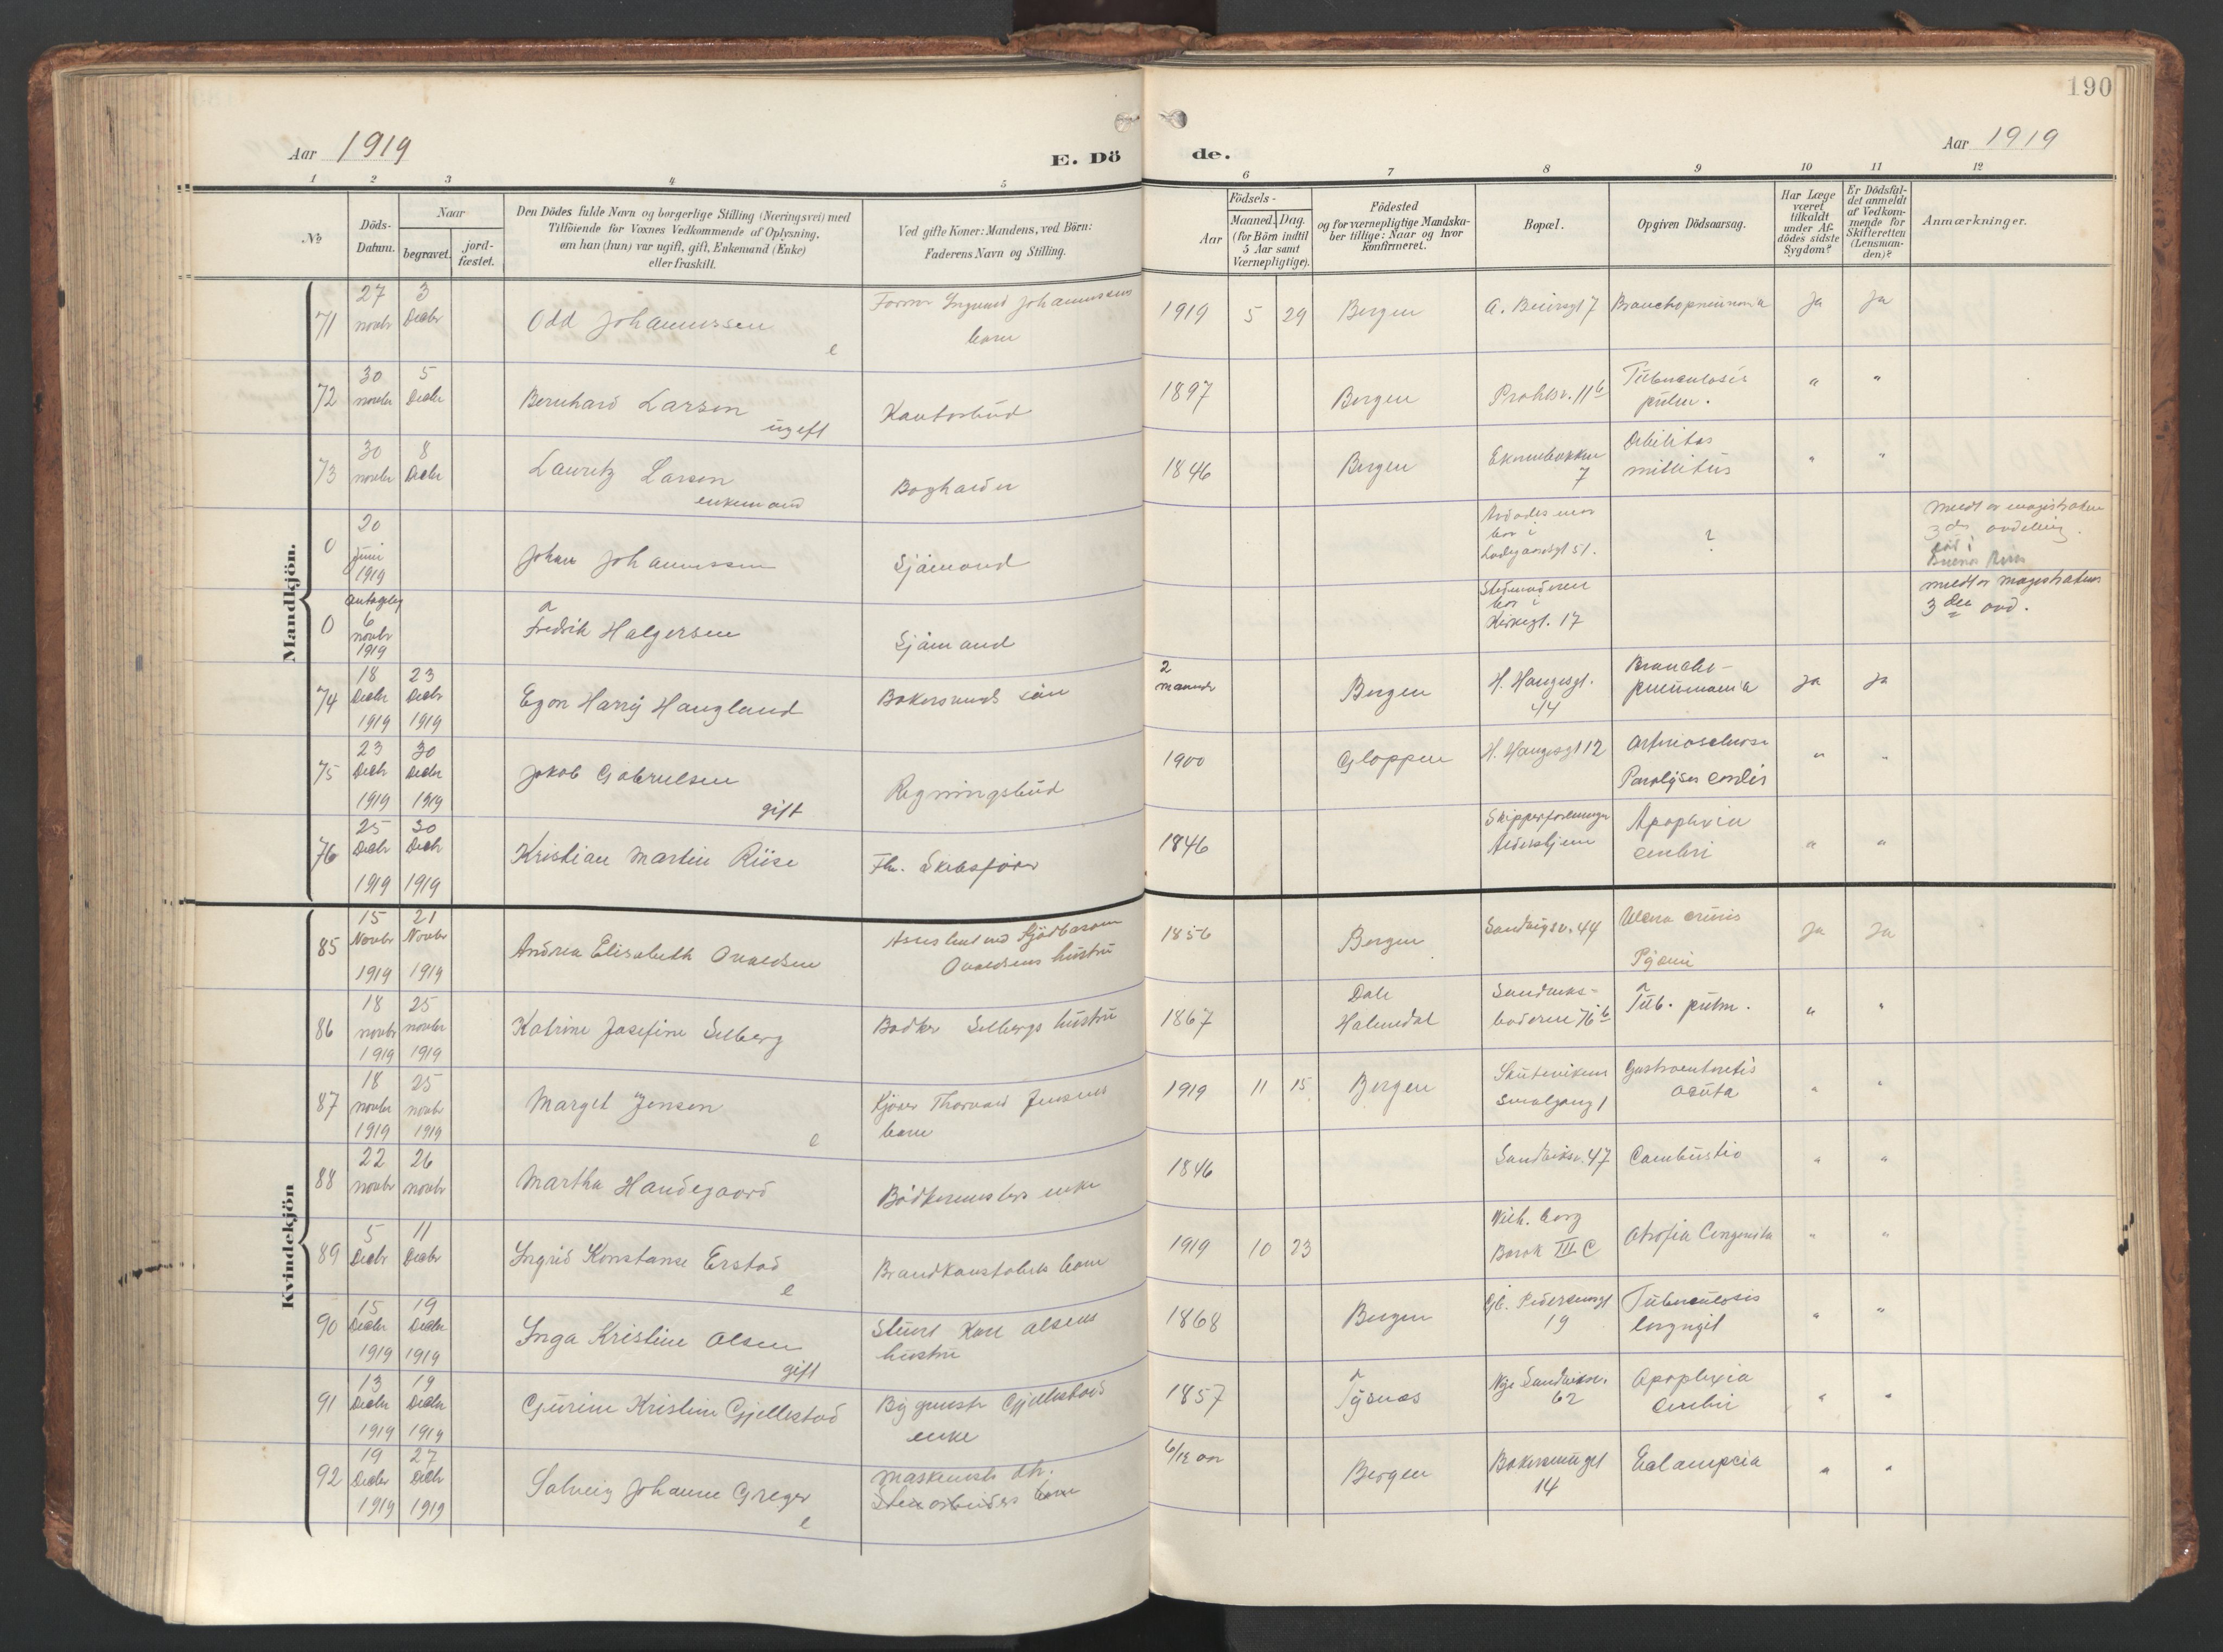 190
Aar 1919
E. Döde.
Aar 1919
1 2 3 4 5 6 7 8 9 10 11 12
No
Döds-Datum.
Naar
begravet.
jord-fæstet.
Den Dödes fulde Navn og borgerlige Stilling (Næringsvei) med
Tilföiende for Voxnes Vedkommende af Oplysning,
om han (hun) var ugift, gift, Enkemand (Enke)
eller fraskilt.
Ved gifte Koner: Mandens, ved Börn:
Faderens Navn og Stilling.
Födsels-
Aar
Maaned. Dag.
(for Börn indtil
5 Aar samt
Værnepligtige).
Födested
og for værnepligtige Mandska-
ber tillige: Naar og hvor
Konfirmeret.
Bopæl.
Opgiven Dödsaarsag.
Har Læge
været
tilkaldt
under Af-
dödes sidste
Sygdom?
Er Dödsfal-
det anmeldt
af Vedkom-
mende for
Skifteretten
(Lensman-
den)?
Anmærkninger.
Mandkjön.
71 27 novbr 3 Decbr Odd Johannessen e Johannessens barn 1919 5 29 Bergen 7 Bronchopneumonia Ja Ja
72 30 novbr 5 Decbr Bernhard Larsen ugift Kontorbud 1897 Bergen 11b Tuberculosis pulm. " "
73 30 novbr 8 Decbr Lauritz Larsen enkemand 1846 Bergen 7 Debilitas " "
0 20 Juni 1919 Johan Johannessen Sjömand bor i Ladegaardsgt 51. ? meldt av magistraten 3die avdeling.
0 antagelig 6 novbr 1919 Fredrik Halgersen Sjömand bor i Kirkegt. 17 meldt av magistraten 3die avd.
74 18 Decbr 1919 23 Decbr 1919 Egon Harry Haugland sön 2 maaneder Bergen H. Haugesgt. 44 Broncho-pneumonia Ja Ja
75 23 Decbr 1919 30 Decbr 1919 Jakob Gabrielsen gift Regningsbud 1900 Gloppen H. Haugesgt 12 Arteriosclerose Paralysis cordis " "
76 25 Decbr 1919 30 Decbr 1919 Kristian Martin Riise Fhv. Skibsförer 1846 Skipperforeningens Aldershjem Apoplexia cerebri " "
Kvindekjön
85 15 Novbr 1919 21 Novbr 1919 Andrea Elisabeth hustru 1856 Bergen Sandvigsv. 44 cruris Pyæmi Ja Ja
86 18 novbr 1919 25 novbr 1919 Katrine Josefine Selberg Selbergs hustru 1867 Dale 76b Tub. pulm. " "
87 18 novbr 1919 25 novbr 1919 Margit Jensen e Kjörer Thorvald Jensens barn 1919 11 15 Bergen Skutevikens Smalgang 1 Gastroenteritis acuta " "
88 22 novbr 26 novbr Martha Haudegaard Bödkermesters enke 1846 Sandviksv. 47 Combustio " "
89 5 Decbr 11 Decbr Ingrid Konstanse Erstad e Brandkonstabels barn 1919 10 23 III C Atrofia Congenita " "
90 15 Decbr 1919 19 Decbr 1919 Inga Kristine Olsen gift Olsens hustru 1868 Bergen 19 Tuberculosis laryngit " "
91 13 Decbr 1919 19 Decbr 1919 Gurine Kristine Gjellestad Bygmestr Gjellestads enke 1857 Tysnæs Nye Sandviksv. 62 Apoplexia cerebri " "
92 19 Decbr 1919 27 Decbr 1919 Solveig Johanne Greger e barn 6/12 aar Bergen 14 Eclampsia " "